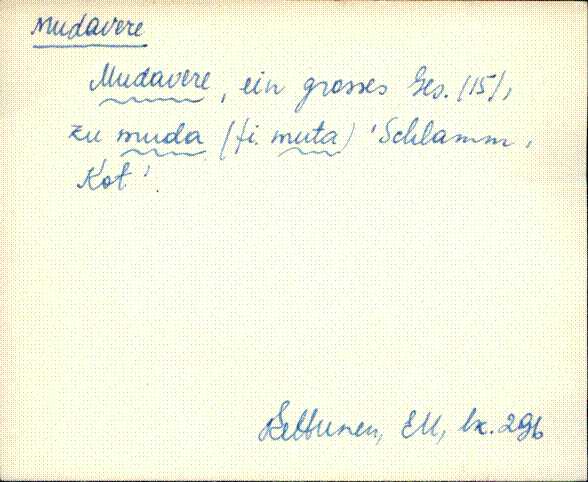 Mudavere
Mudavere, ein grosses Ges. (15),
zu muda (fi. muta) 'Schlamm,
Kot'.
Kettunen, EM, lk. 296